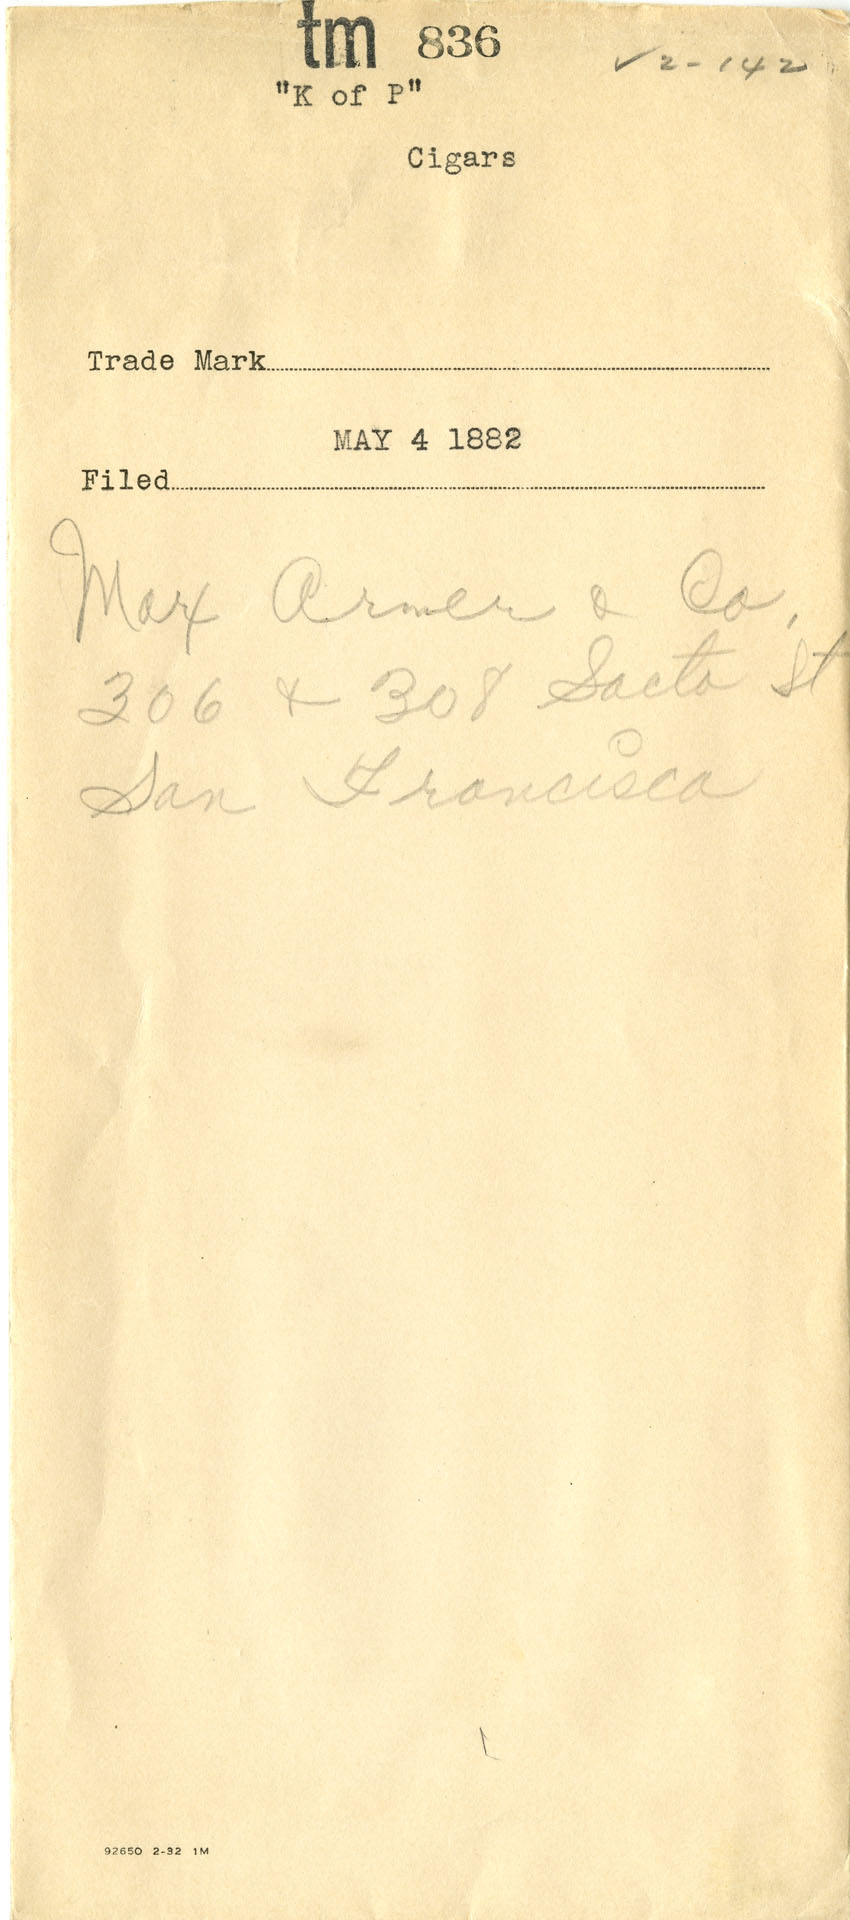 tm 836 ✓ 2-142
"K of P"
Cigars
Trade Mark
MAY 4 1882
Filed
Max Armer & Co,
306 & 308 Sacto St
San Francisco
92650 2-32 1M